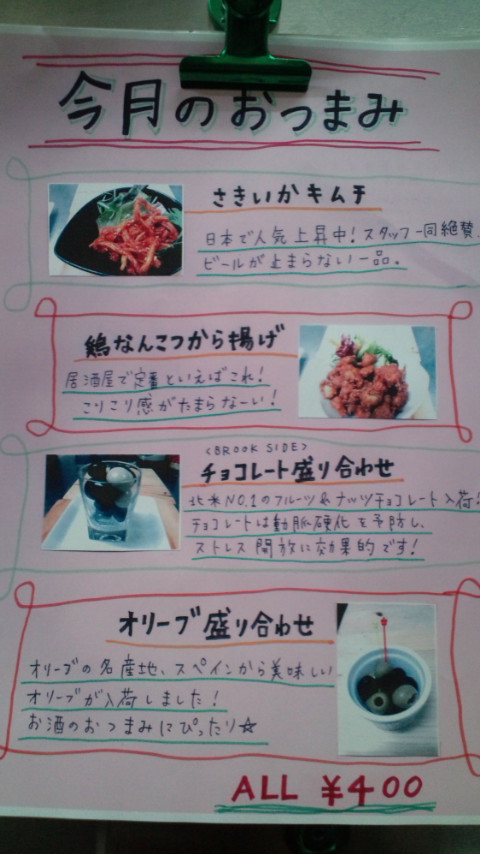 今月のおつまみ
さきいかキムチ
日本で人気上昇中！スタッフ一同絶賛
ビールが止まらない一品。
鶏なんこつから揚げ
居酒屋で定番といえばこれ！
こりこり感がたまらなーい！
<BROOK SIDE>
チョコレート盛り合わせ
北米NO.1のフルーツ&ナッツチョコレート入荷！
チョコレートは動脈硬化を予防し、
ストレス開放に効果的です！
オリーブ盛り合わせ
オリーブの名産地、スペインから美味しい
オリーブが入荷しました！
お酒のおつまみにぴったり☆
ALL ¥400